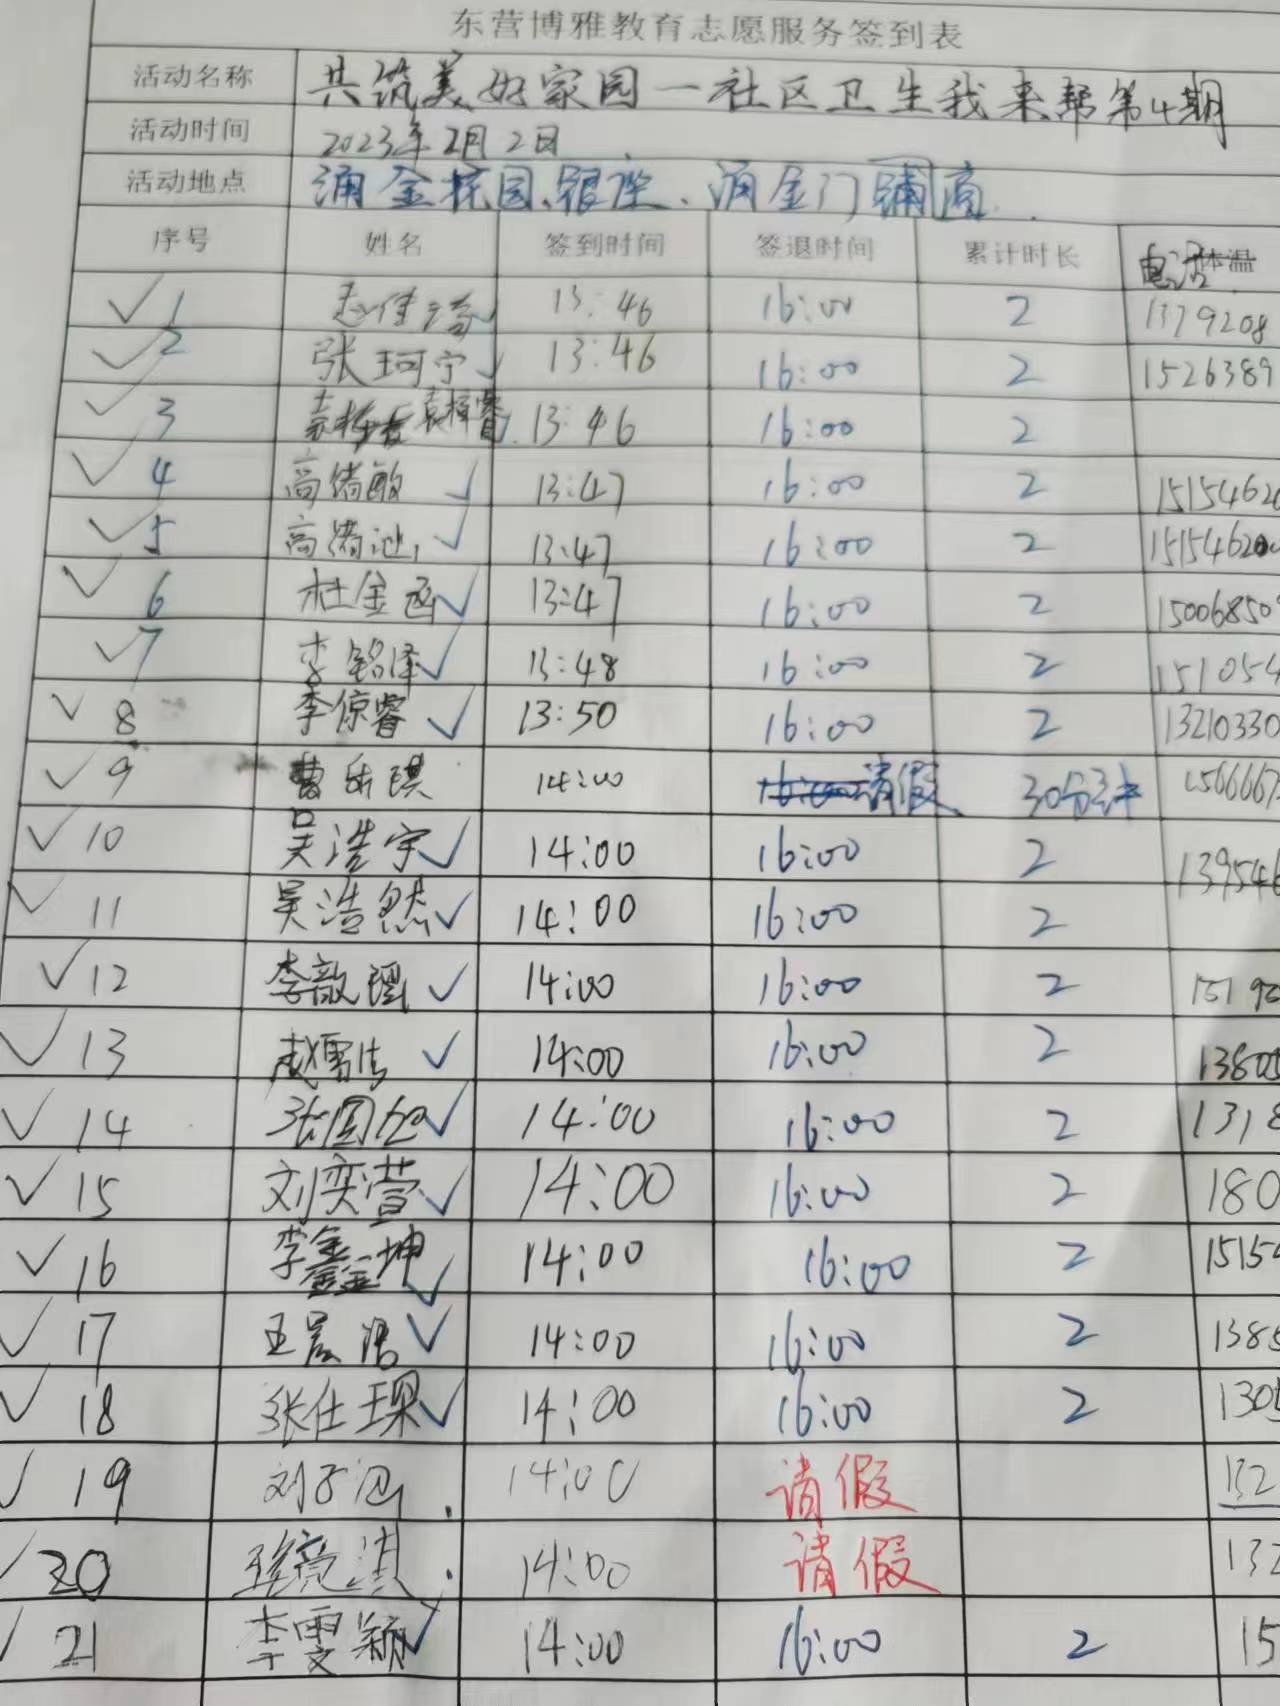 东营博雅教育志愿服务签到表
活动名称 共筑美好家园一社区卫生我来帮第4期
活动时间 2023年2月2日
活动地点 涌金花园、银座、涌金门铺商
序号 姓名 签到时间 签退时间 累计时长 电话体温
1 13:46 16:00 2 1379208
2 张珂宁 13:46 16:00 2 1526389
3 袁梓睿 13:46 16:00 2
4 高绪敏 13:47 16:00 2 15154620
5 高绪 13:47 16:00 2 15154620
6 杜金函 13:47 16:00 2 15006850
7 李铭泽 13:48 16:00 2 151054
8 李倞睿 13:50 16:00 2 13210330
9 曹乐琪 14:00 16:00 请假 30分钟 156667
10 吴浩宇 14:00 16:00 2 139546
11 吴浩然 14:00 16:00 2
12 李歆瑶 14:00 16:00 2 15192
13 赵雪 14:00 16:00 2 13805
14 张圆 14:00 16:00 2 1318
15 刘奕萱 14:00 16:00 2 180
16 李鑫坤 14:00 16:00 2 15154
17 王晨浩 14:00 16:00 2 1388
18 张仕琛 14:00 16:00 2 1305
19 刘子涵 14:00 请假 132
20 淇 14:00 请假 132
21 李雯颖 14:00 16:00 2 15